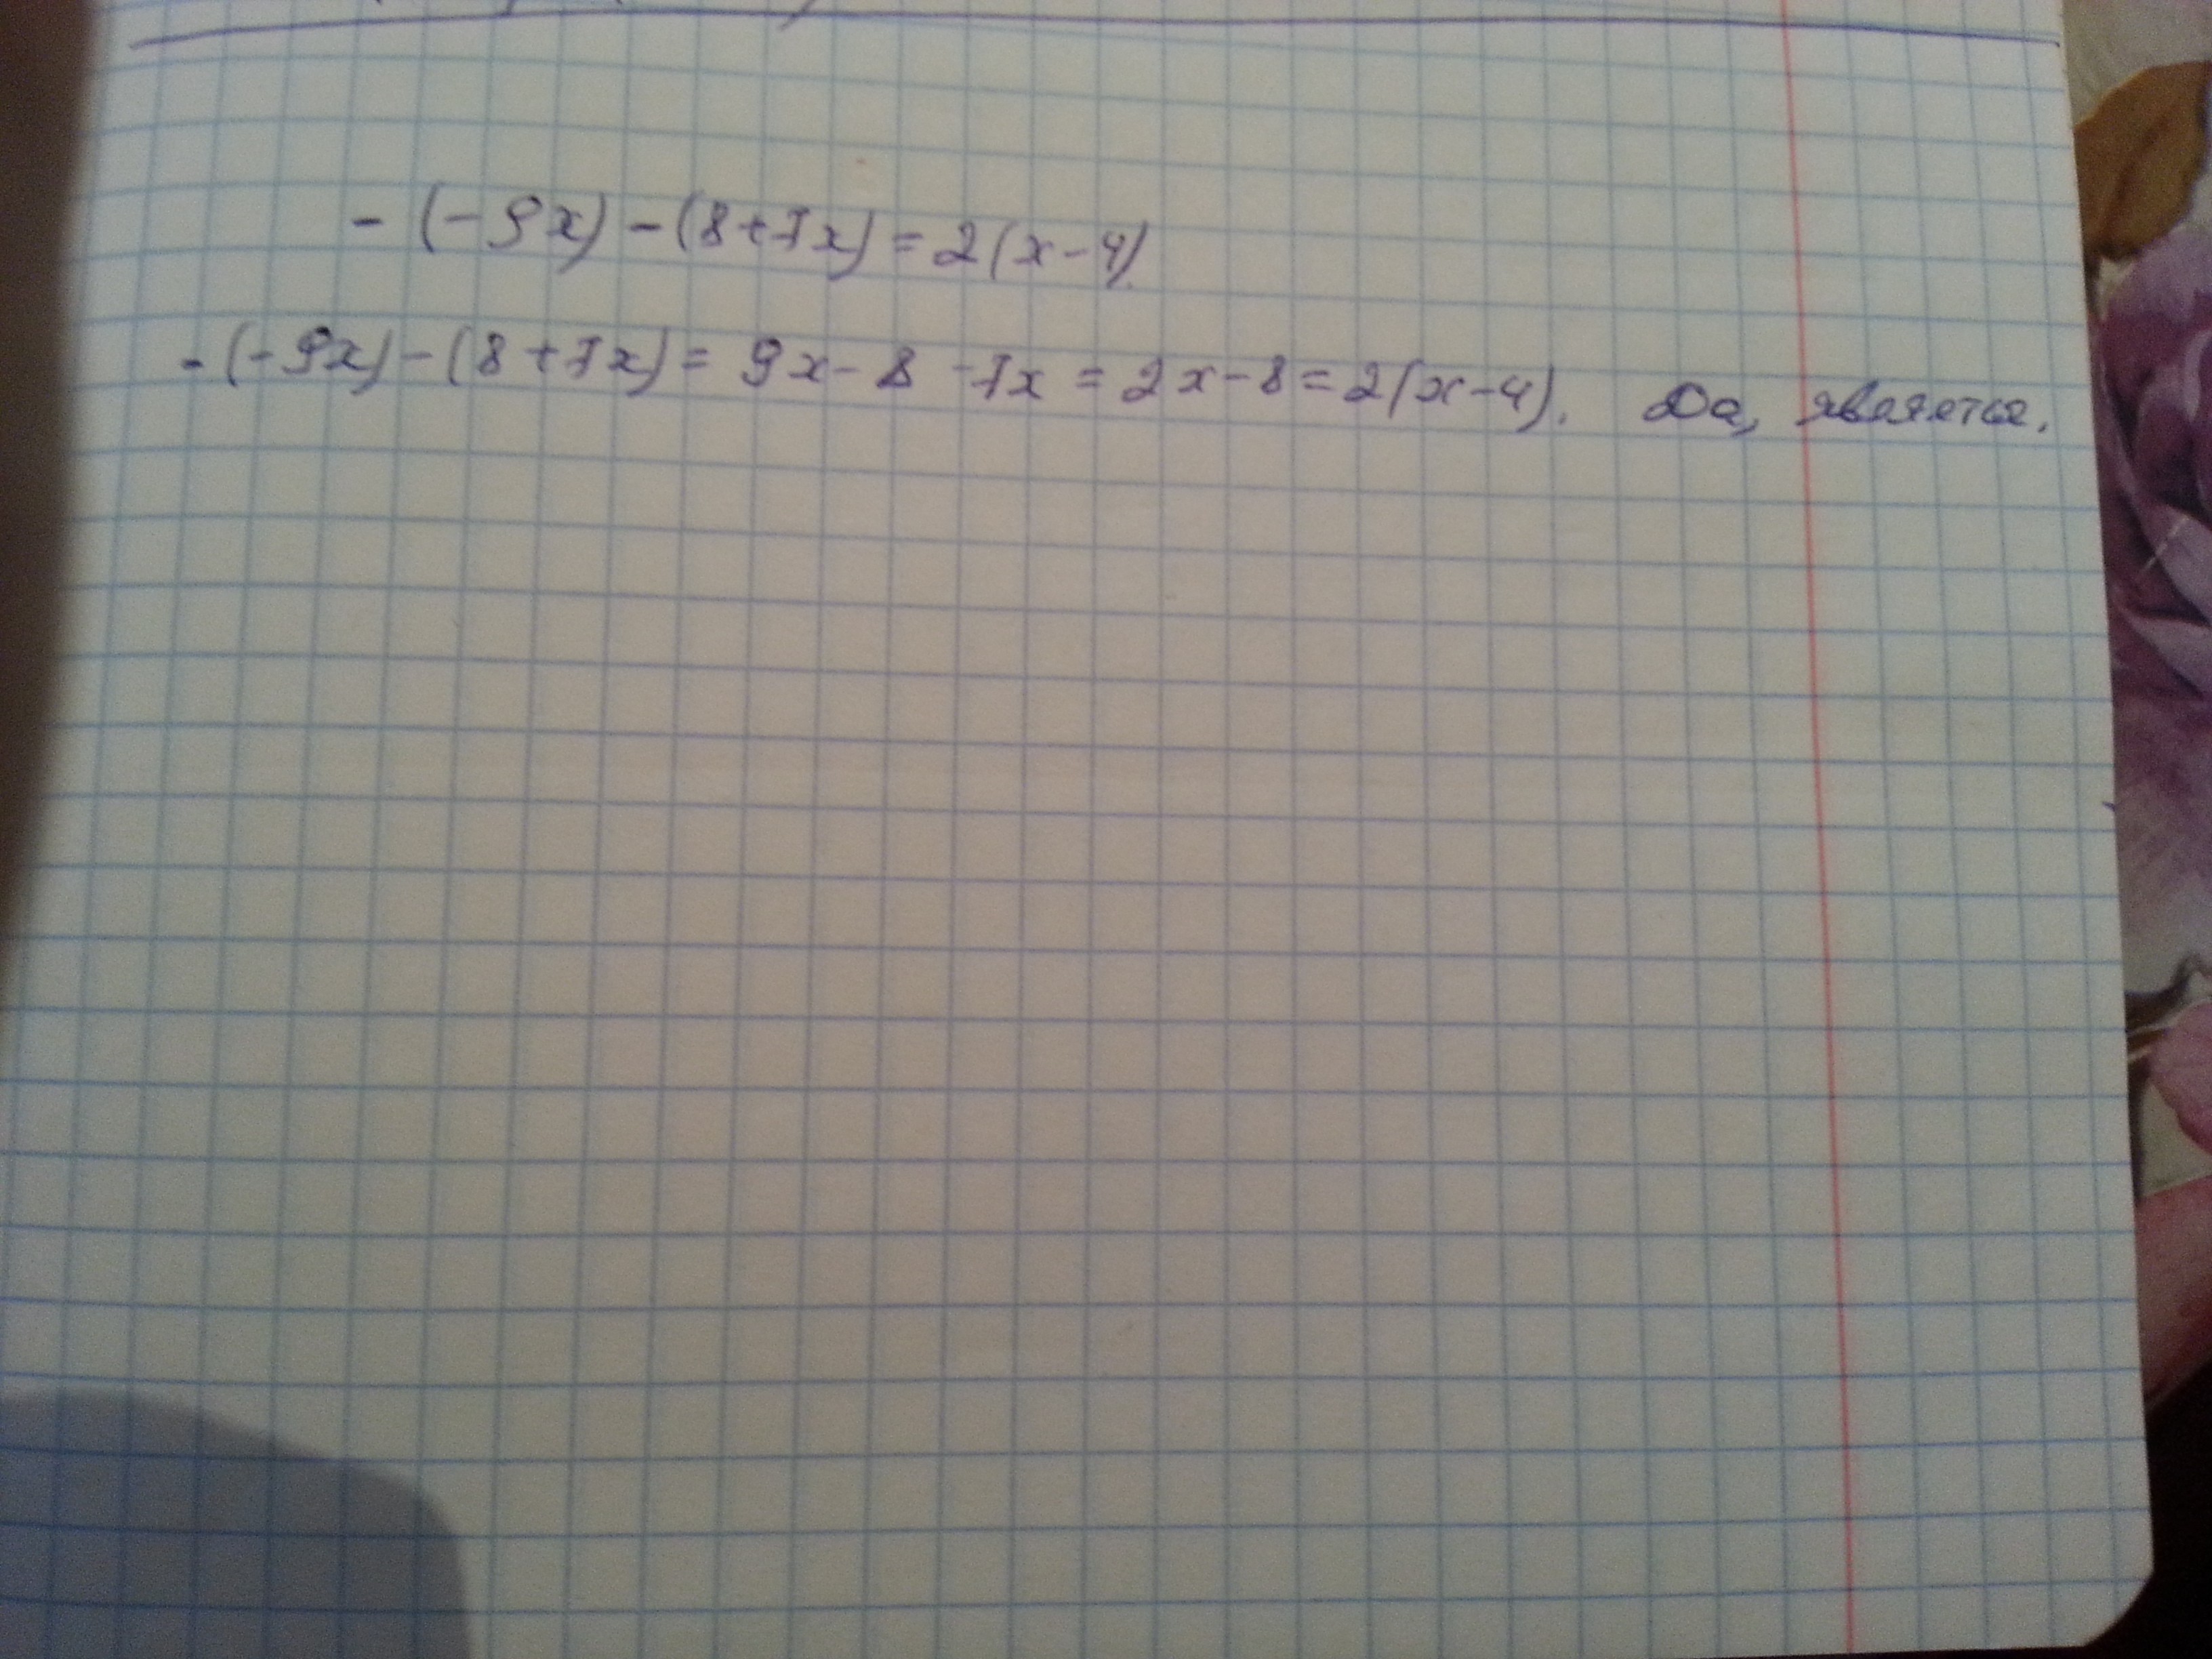 - (-9x) - (8+7x) = 2(x-4)
- (-9x) - (8+7x) = 9x - 8 - 7x = 2x - 8 = 2(x-4). Да, является.